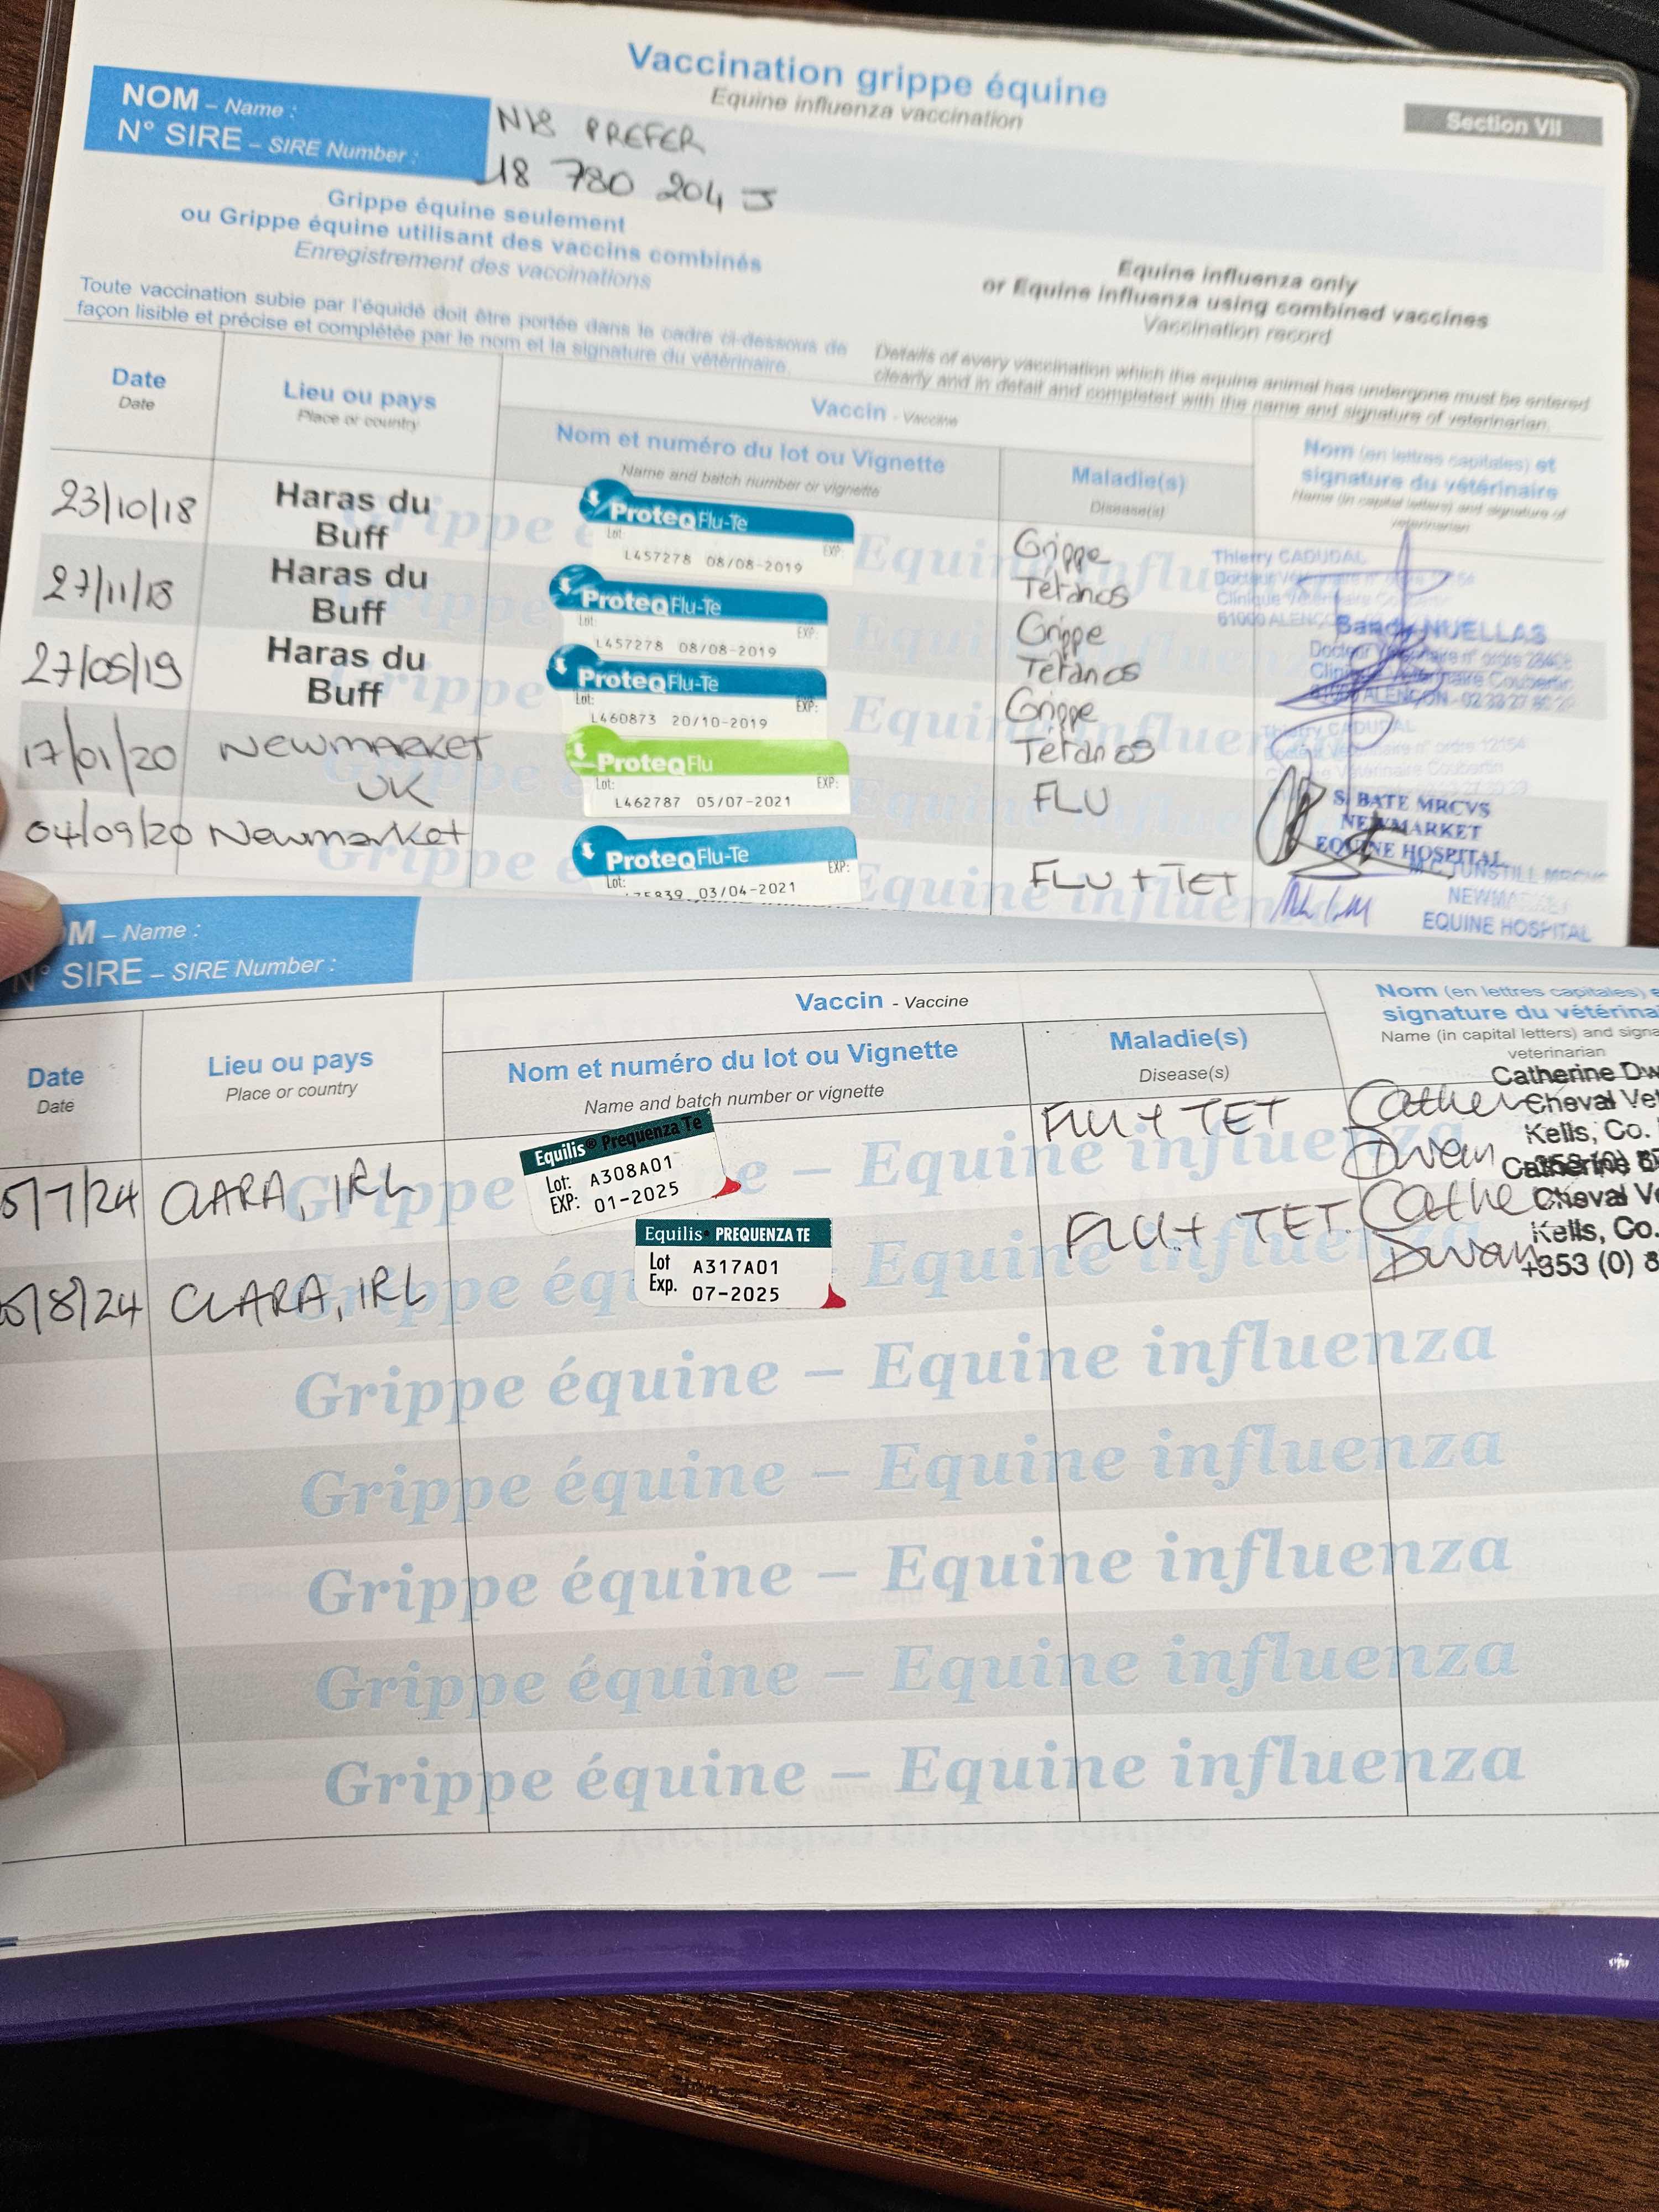 Vaccination grippe équine
Equine influenza vaccination
Section VII
NOM – Name :
N° SIRE – SIRE Number :
PREFER
18 780 204 J
Grippe équine seulement
ou Grippe équine utilisant des vaccins combinés
Enregistrement des vaccinations
Equine influenza only
or Equine influenza using combined vaccines
Vaccination record
Toute vaccination subie par l'équidé doit être portée dans le cadre ci-dessous de
façon lisible et précise et complétée par le nom et la signature du vétérinaire.
Details of every vaccination which the equine animal has undergone must be entered
clearly and in detail and completed with the name and signature of veterinarian.
Date
Date
Lieu ou pays
Place or country
Vaccin - Vaccine
Nom et numéro du lot ou Vignette
Name and batch number or vignette
Maladie(s)
Disease(s)
Nom (en lettres capitales) et
signature du vétérinaire
Name (in capital letters) and signature of
veterinarian
23/10/18
Haras du
Buff
ProteqFlu-Te
Lot: EXP:
L457278 08/08-2019
Grippe
Tétanos
Thierry CADUDAL
61000 ALENÇ
27/11/18
Haras du
Buff
ProteqFlu-Te
Lot: EXP:
L457278 08/08-2019
Grippe
Tétanos
Sandy NUELLAS
27/05/19
Haras du
Buff
ProteqFlu-Te
Lot: EXP:
L460873 20/10-2019
Grippe
Tétanos
CADUDAL
17/01/20
NEWMARKET
UK
ProteqFlu
Lot: EXP:
L462787 05/07-2021
FLU
S. BATE MRCVS
NEWMARKET
EQUINE HOSPITAL
04/09/20
Newmarket
ProteqFlu-Te
Lot: EXP:
03/04-2021
FLU + TET
EQUINE HOSPITAL
OM – Name :
N° SIRE – SIRE Number :
Date
Date
Lieu ou pays
Place or country
Vaccin - Vaccine
Nom et numéro du lot ou Vignette
Name and batch number or vignette
Maladie(s)
Disease(s)
Nom (en lettres capitales)
signature du vétérina
Name (in capital letters) and signa
veterinarian
5/7/24
CLARA, IRL
Equilis® Prequenza Te
Lot: A308A01
EXP: 01-2025
FLU + TET
Catherine Dw
Cheval Ve
Kells, Co.
5/8/24
CLARA, IRL
Equilis PREQUENZA TE
Lot A317A01
Exp. 07-2025
FLU + TET
Catherine
Cheval Ve
Kells, Co.
+353 (0) 8
Grippe équine – Equine influenza
Grippe équine – Equine influenza
Grippe équine – Equine influenza
Grippe équine – Equine influenza
Grippe équine – Equine influenza